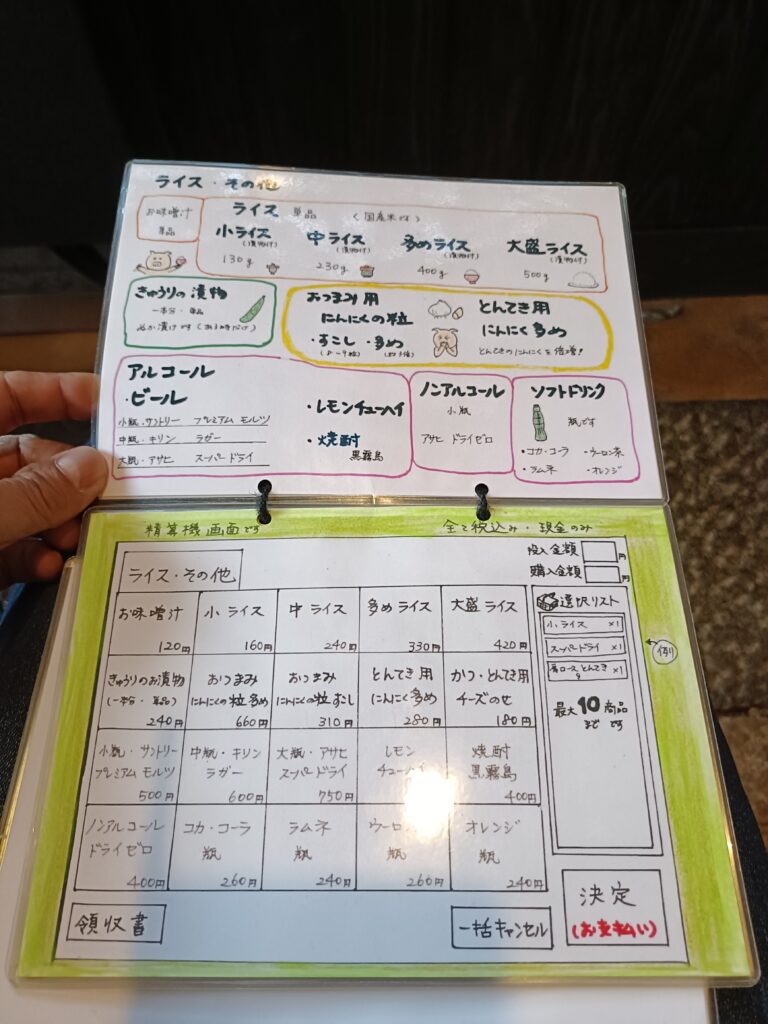 ライス・その他
お味噌汁
単品
ライス 単品 (国産米です)
小ライス
(漬物付)
130g
中ライス
(漬物付)
230g
多めライス
(漬物付)
400g
大盛ライス
(漬物付)
500g
きゅうりの漬物
一本分・単品
ぬか漬けです(ある時だけ)
おつまみ用
にんにくの粒
・すこし・多め
とんてき用
にんにく多め
とんてきのにんにくを倍増!
アルコール
・ビール
小瓶・サントリー プレミアム モルツ
中瓶・キリン ラガー
大瓶・アサヒ スーパードライ
・レモンチューハイ
・焼酎
黒霧島
ノンアルコール
小瓶
アサヒ ドライゼロ
ソフトドリンク
瓶です
・コカ・コーラ ・ウーロン茶
・ラムネ ・オレンジ
精算機画面です 全て税込み・現金のみ
ライス・その他
投入金額 円
購入金額 円
お味噌汁
120円
小ライス
160円
中ライス
240円
多めライス
330円
大盛ライス
420円
きゅうりのお漬物
(一本分・単品)
240円
おつまみ
にんにくの粒多め
660円
おつまみ
にんにくの粒すこし
310円
とんてき用
にんにく多め
280円
かつ・とんてき用
チーズのせ
180円
小瓶・サントリー
プレミアム モルツ
500円
中瓶・キリン
ラガー
600円
大瓶・アサヒ
スーパードライ
750円
レモン
チューハイ
焼酎
黒霧島
400円
ノンアルコール
ドライゼロ
400円
コカ・コーラ
瓶
260円
ラムネ
瓶
240円
ウーロン
瓶
260円
オレンジ
瓶
240円
選択リスト
小ライス ×1
スーパードライ ×1
肩ロースとんてき ×1
例
最大10商品
まで です
領収書
一括キャンセル
決定
(お支払い)